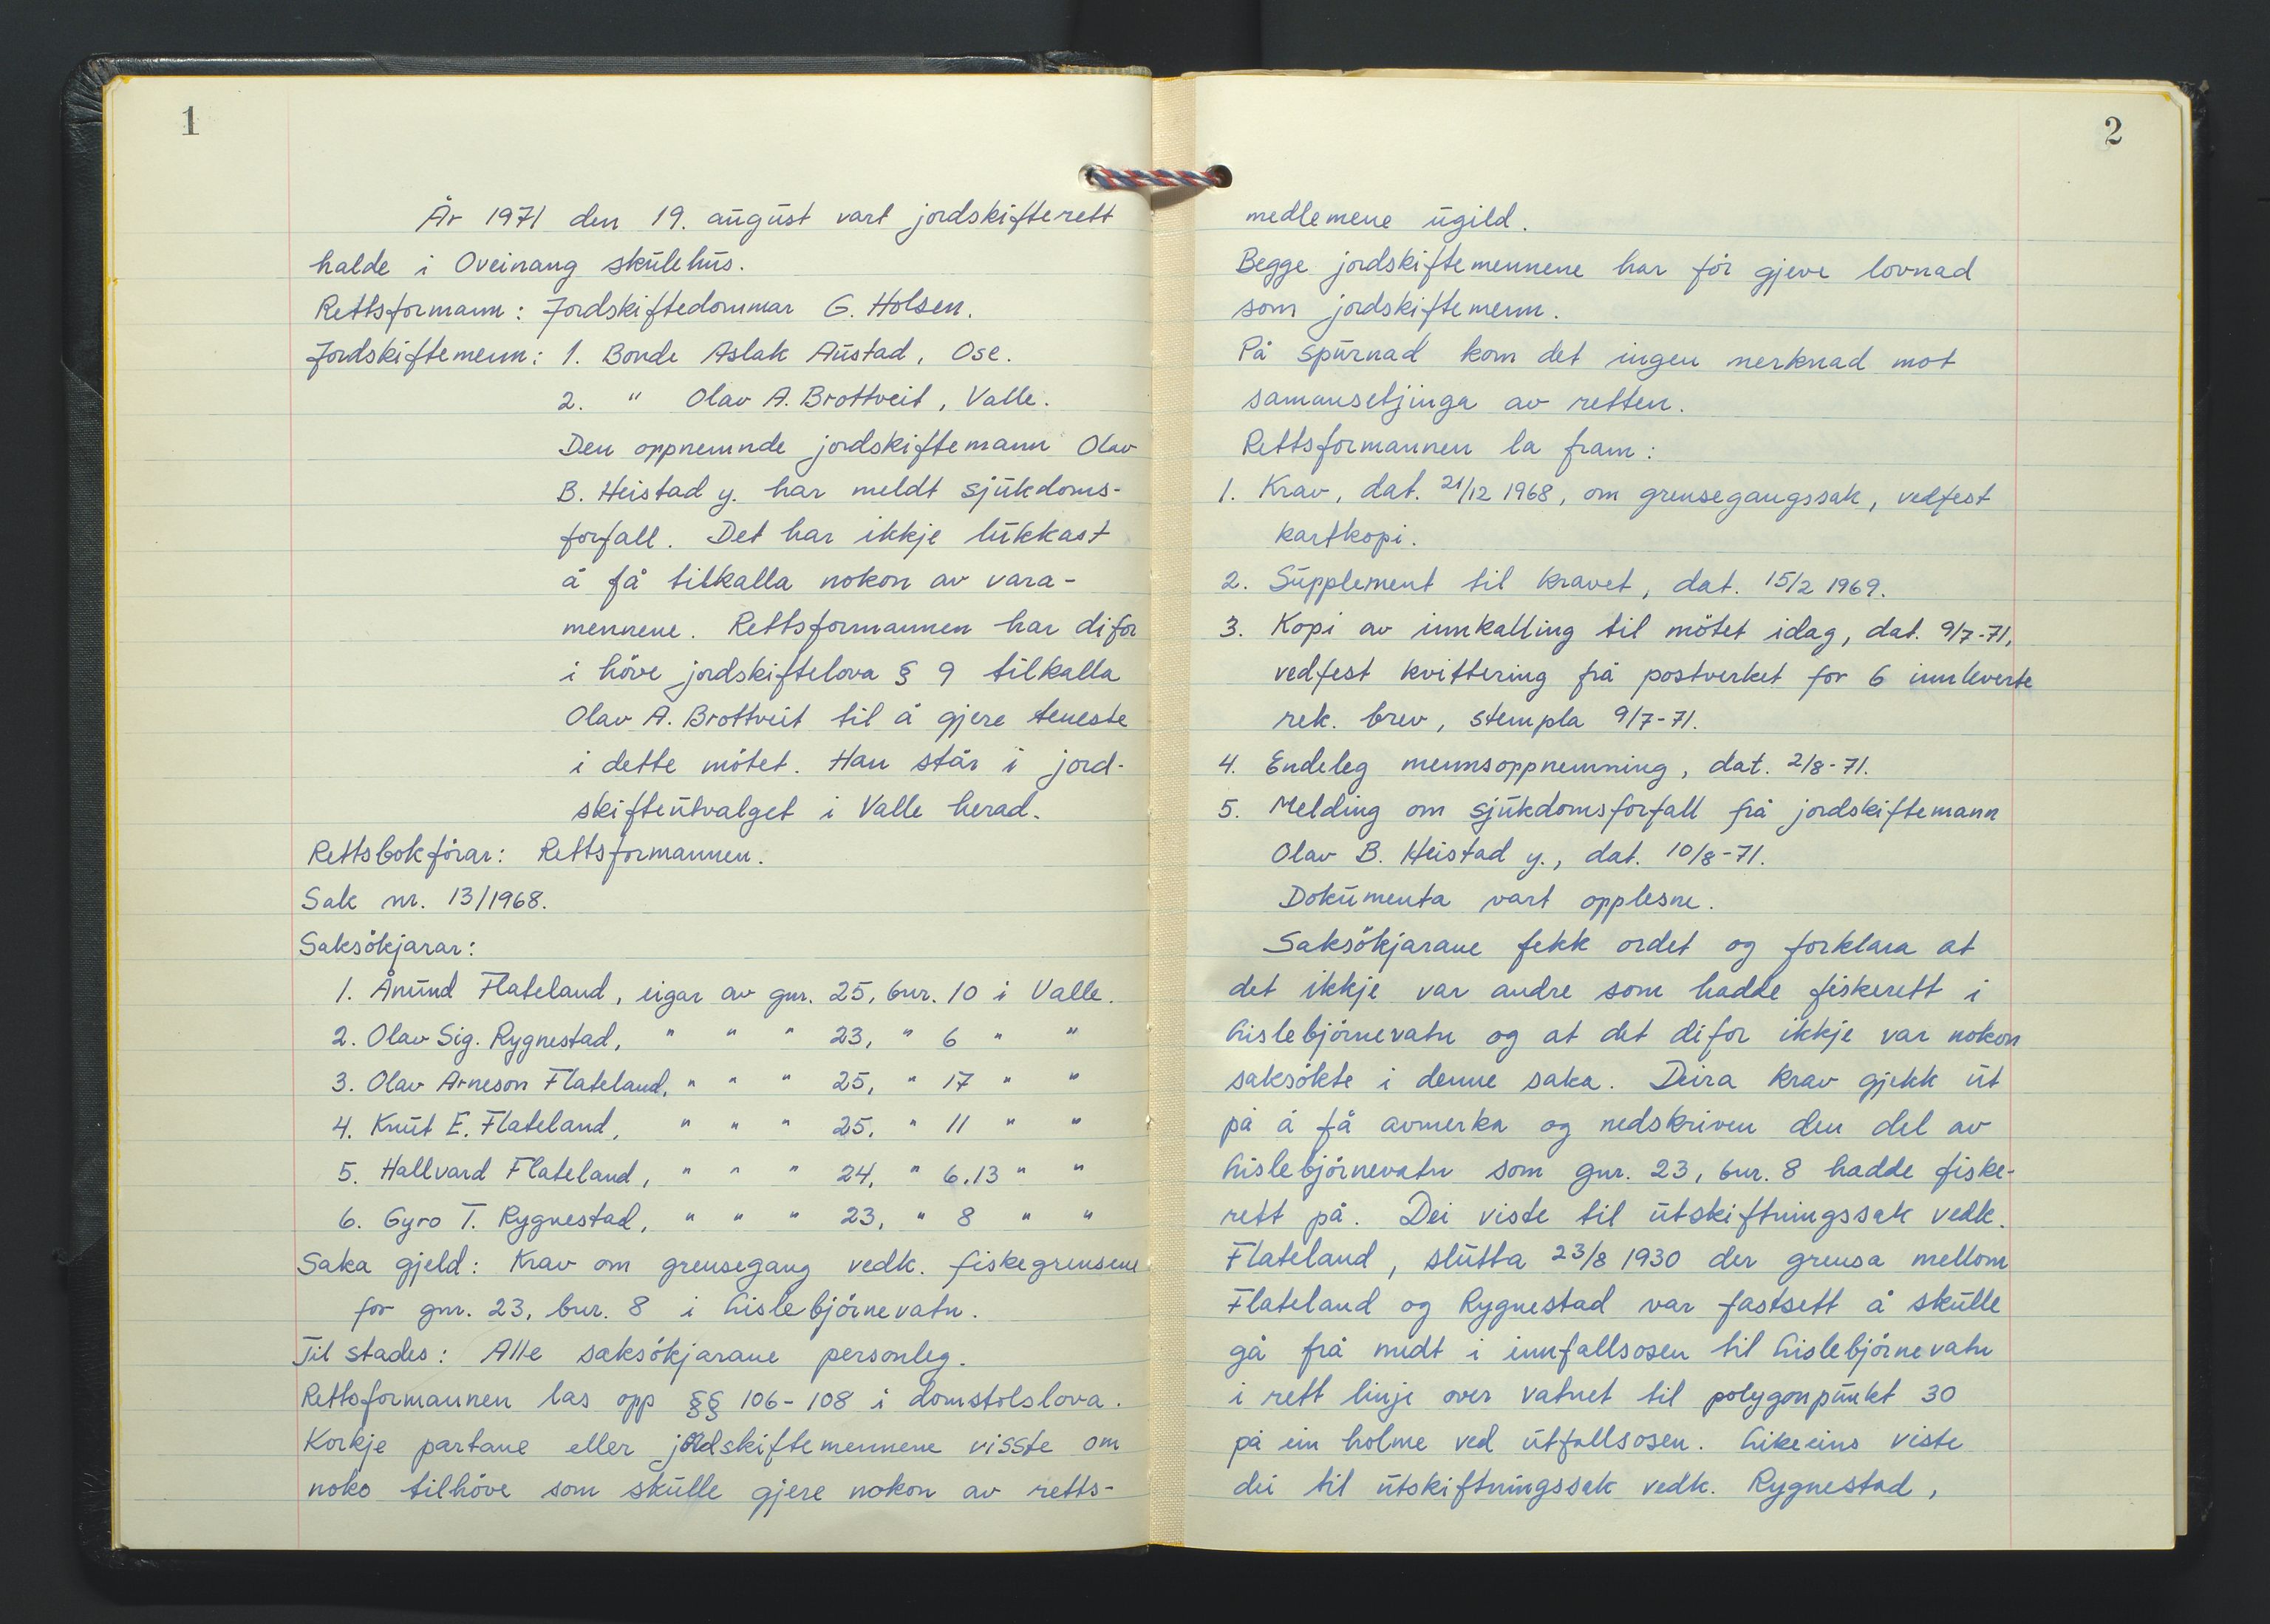 1
År 1971 den 19. august vart jordskifterett
halde i Oveinang skulehus.
Rettsformann: Jordskiftedommar G. Holsen.
Jordskiftemenn: 1. Bonde Aslak Austad, Ose.
2. " Olav A. Brottveit, Valle.
Den oppnemnde jordskiftemann Olav
B. Heistad y. har meldt sjukdoms-
forfall. Det har ikkje lukkast
å få tilkalla nokon av vara-
mennene. Rettsformannen har difor
i höve jordskiftelova § 9 tilkalla
Olav A. Brottveit til å gjere teneste
i dette mötet. Han står i jord-
skifteutvalget i Valle herad.
Rettsbokförar: Rettsformannen.
Sak nr. 13/1968.
Saksökjarar:
1. Ånund Flateland, eigar av gnr. 25, bnr. 10 i Valle.
2. Olav Sig. Rygnestad, " " " 23, " 6 " "
3. Olav Arneson Flateland, " " " 25, " 17 " "
4. Knut E. Flateland, " " " 25, " 11 " "
5. Hallvard Flateland, " " " 24, " 6,13 " "
6. Gyro T. Rygnestad, " " " 23, " 8 " "
Saka gjeld: Krav om grensegang vedk. fiskegrensene
for gnr. 23, bnr. 8 i Lislebjörnevatn.
Til stades: Alle saksökjarane personleg.
Rettsformannen las opp §§ 106-108 i domstolslova.
Korkje partane eller jordskiftemennene visste om
noko tilhöve som skulle gjere nokon av retts-
2
medlemene ugild.
Begge jordskiftemennene harför gjeve lovnad
som jordskiftemenn.
På spurnad kom det ingen merknad mot
samansetjinga av retten.
Rettsformannen la fram:
1. Krav, dat. 21/12 1968, om grensegangssak, vedfest
kartkopi.
2. Supplement til kravet, dat. 15/2 1969.
3. Kopi av innkalling til mötet idag, dat. 9/7-71,
vedfest kvittering frå postverket for 6 innleverte
rek. brev, stempla 9/7-71.
4. Endeleg mennsoppnemning, dat. 2/8-71.
5. Melding om sjukdomsforfall frå jordskiftemann
Olav B. Heistad y., dat. 10/8-71.
Dokumenta vart opplesne.
Saksökjarane fekk ordet og forklara at
det ikkje var andre som hadde fiskerett i
Lislebjörnevatn og at det difor ikkje var nokon
saksökte i denne saka. Deira krav gjekk ut
på å få avmerka og nedskriven den del av
Lislebjörnevatn som gnr. 23, bnr. 8 hadde fiske-
rett på. Dei viste til utskiftningssak vedk.
Flateland, slutta 23/8 1930 der grensa mellom
Flateland og Rygnestad var fastsett å skulle
gå frå midt i innfallsosen til Lislebjörnevatn
i rett linje over vatnet til polygonpunkt 30
på ein holme ved utfallsosen. Likeeins viste
dei til utskiftningssak vedk. Rygnestad,